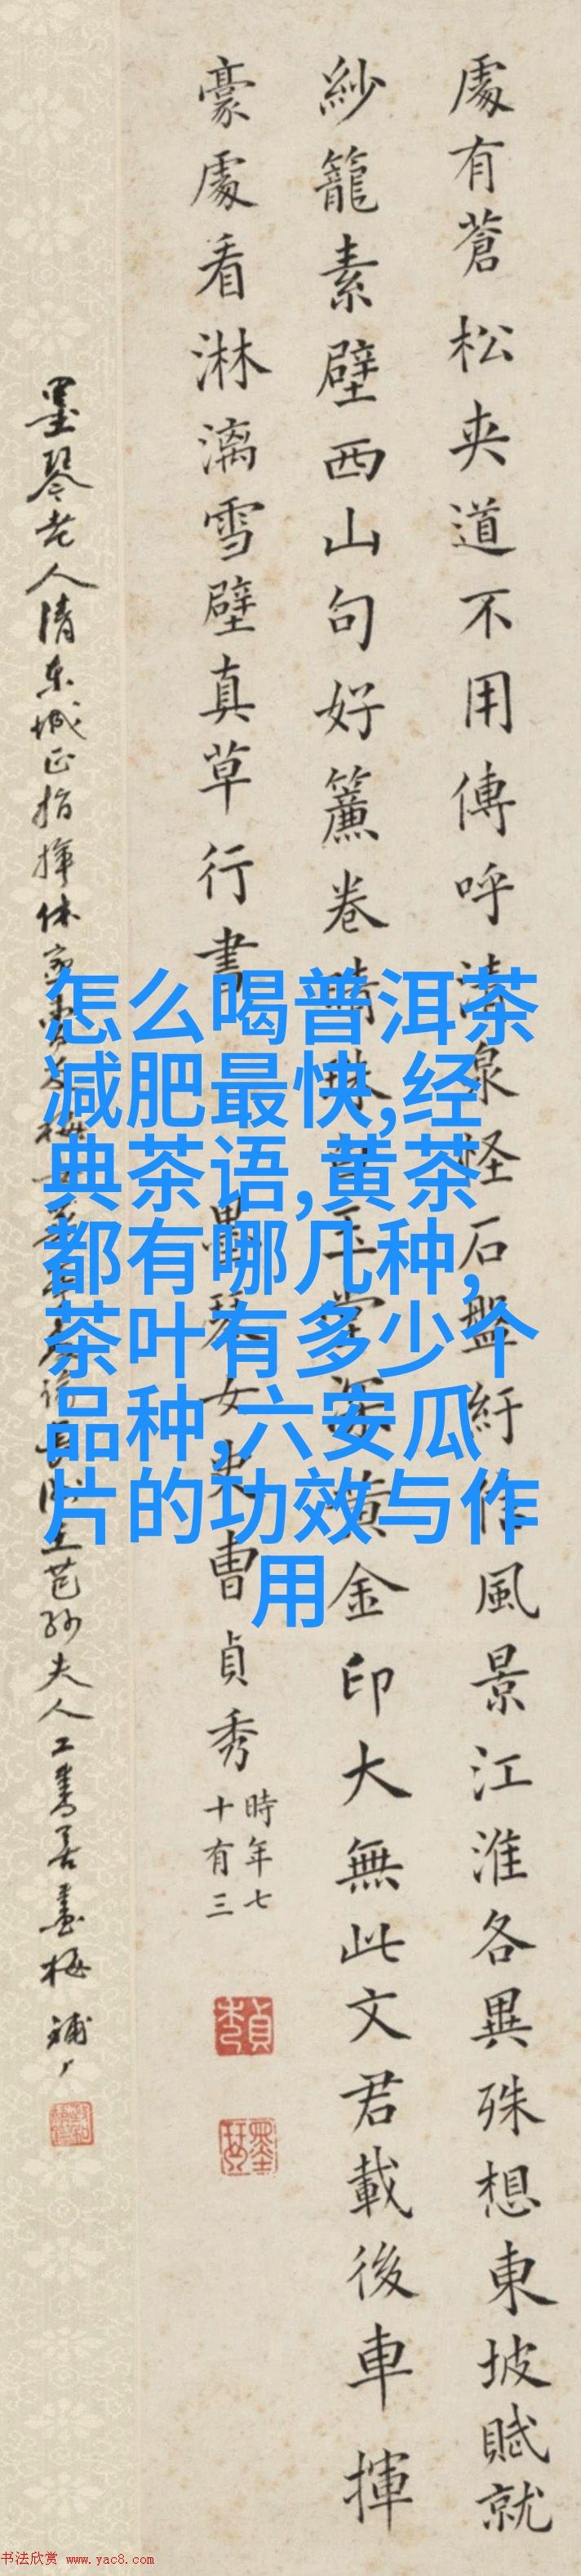 處有蒼松夾道不用傳呼清泉怪石盤紆信風景江淮各異殊想東坡賦就
紗籠素壁西山句好簾卷晴珠白玉堂深黃金印大無此文君載後車揮
豪處看淋漓雪壁真草行書
墨琴女史曹貞秀
時年七
十有三
墨琴老人清東城正指揮
夫人工書善畫梅
怎么喝普洱茶
减肥最快,经
典茶语,黄茶
都有哪几种,
茶叶有多少个
品种,六安瓜
片的功效与作
用
书法欣赏 www.yac8.com